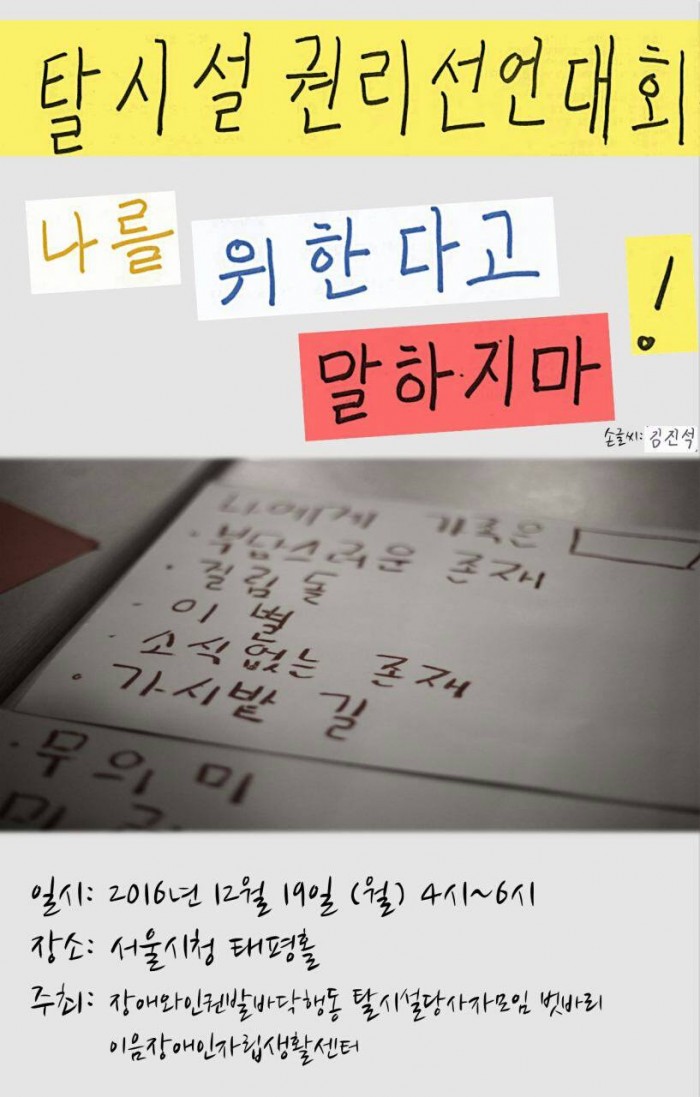 탈시설 권리선언대회
나를 위한다고
말하지마!
손글씨: 김진석
나에게 가족은
· 부담스러운 존재
· 걸림돌
· 이별
· 소식없는 존재
· 가시밭길
· 무의미
일시: 2016년 12월 19일 (월) 4시~6시
장소: 서울시청 태평홀
주최: 장애와인권발바닥행동 탈시설당사자모임 벗바리
이음장애인자립생활센터